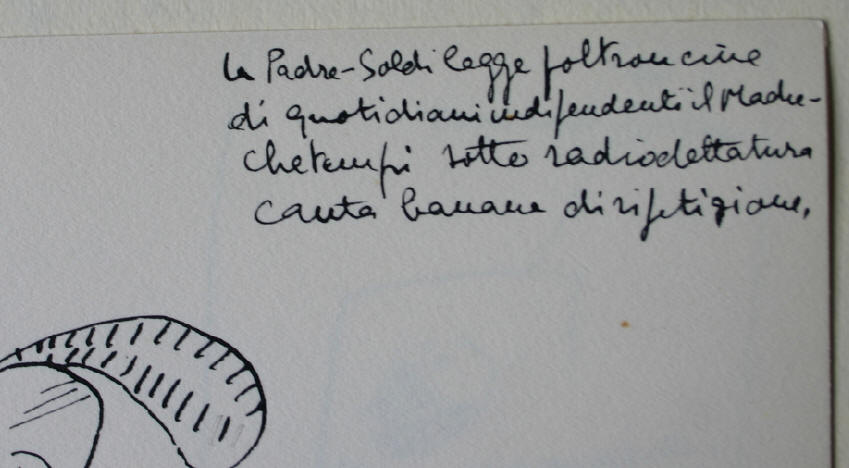 la Padre-Soldi legge poltroncine
di quotidiani indipendenti il Madre-
chetempi sotto radiodettatura
canta banane di ripetizione,